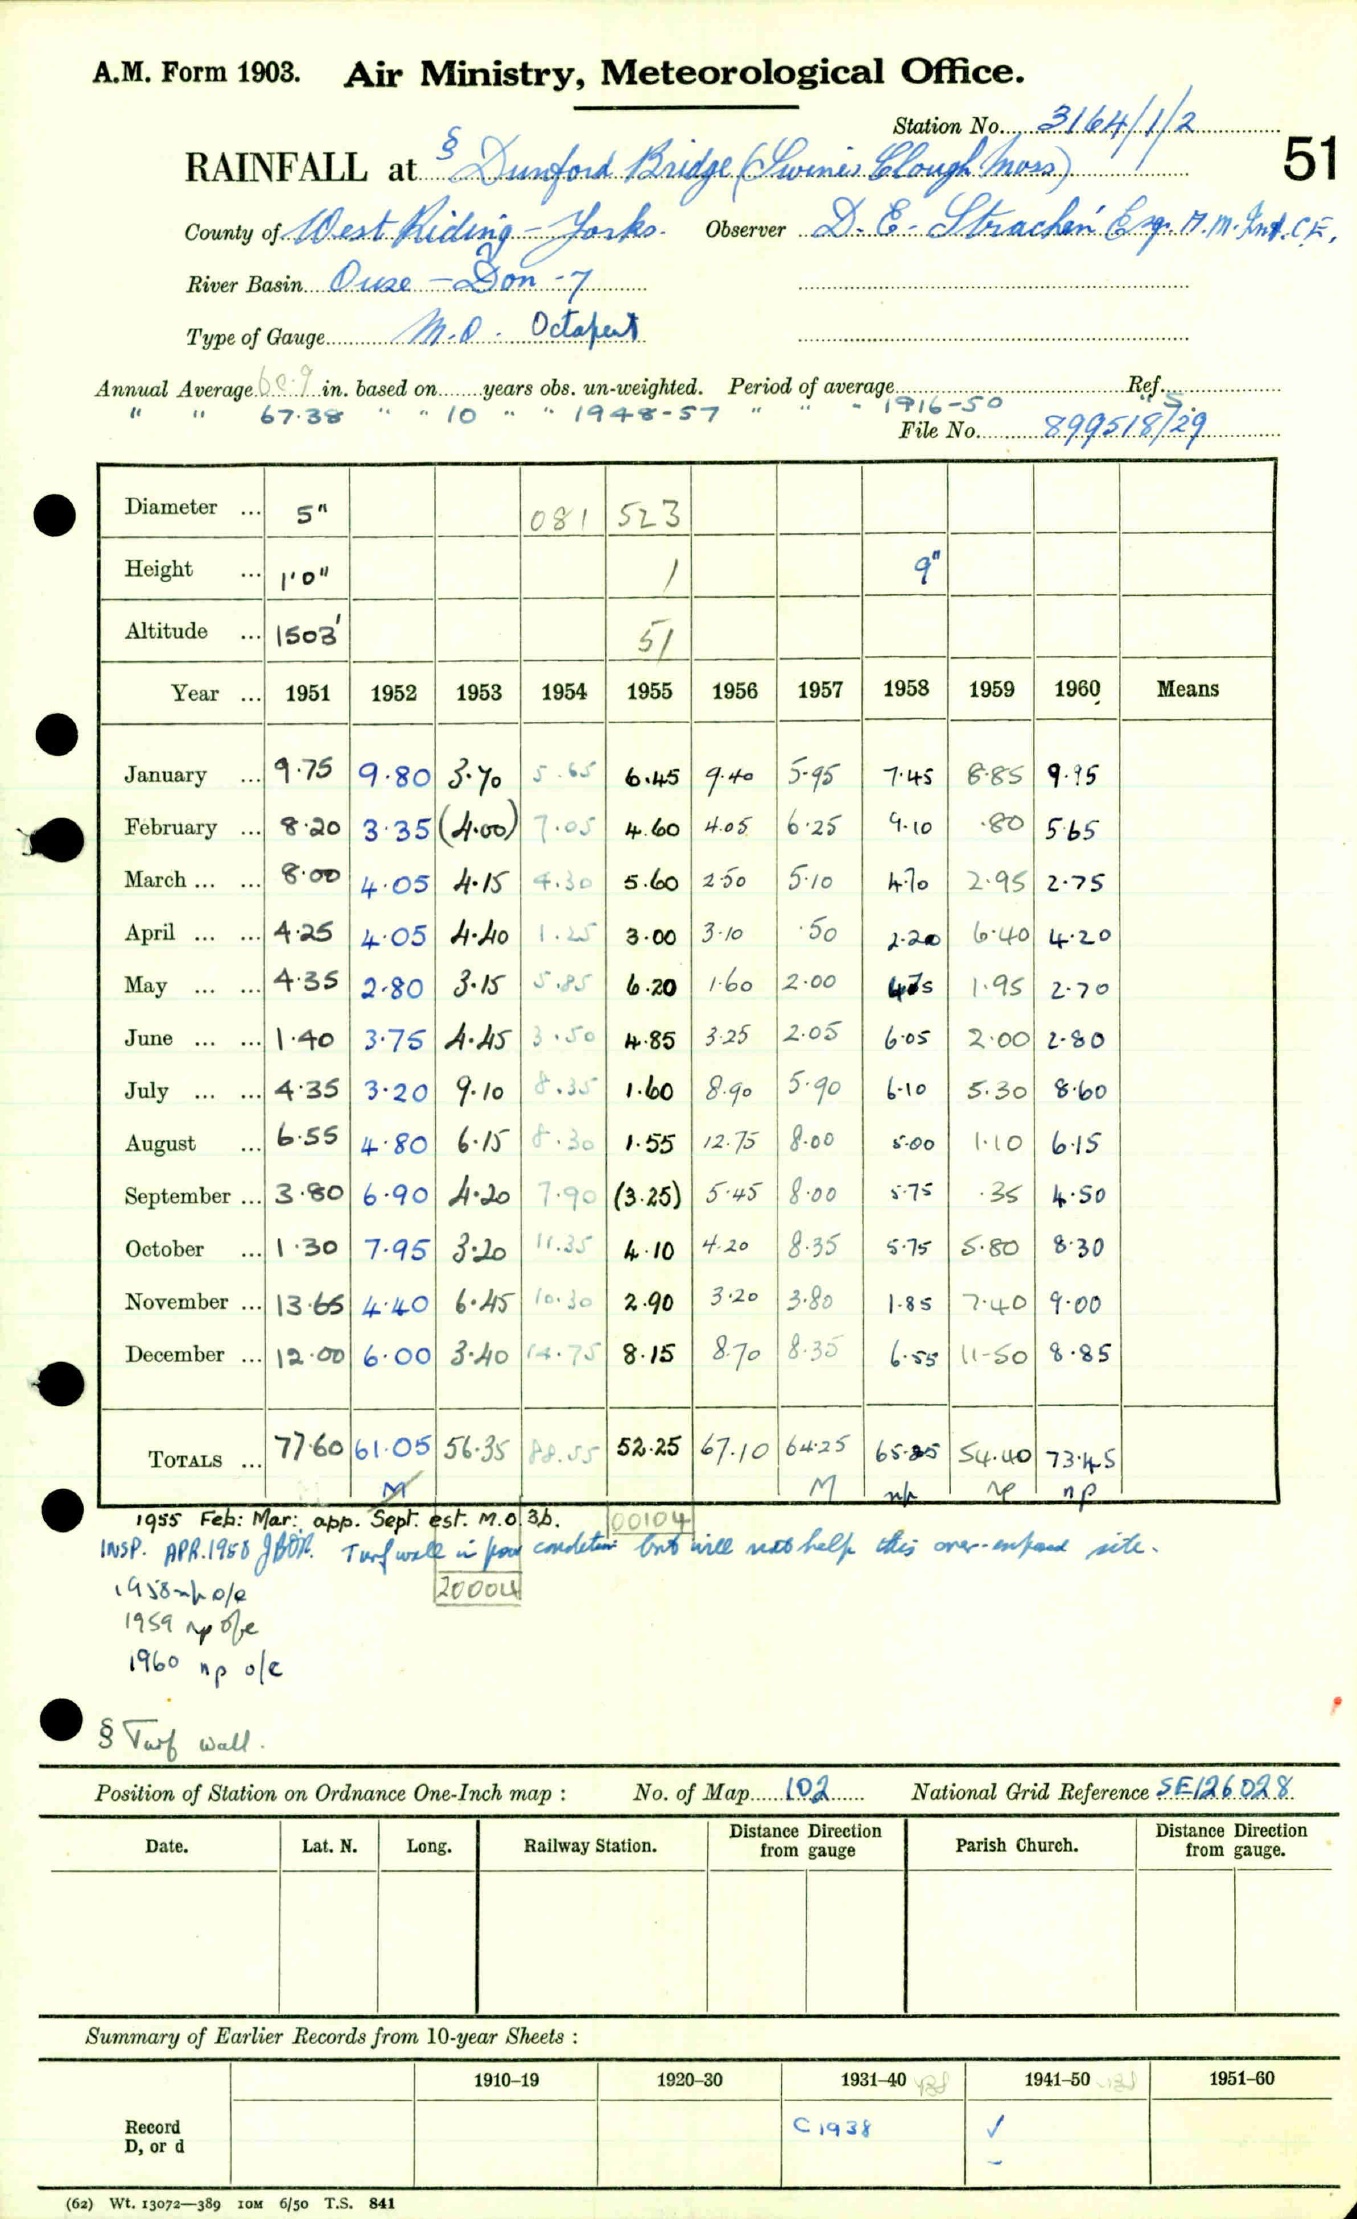 A.M. Form 1903. Air Ministry, Meteorological Office.
Station No. 3164/1/2
51
RAINFALL at § Dunford Bridge (Swiner Clough Moss)
County of West Riding - Yorks. Observer D. E. Strachan Esq. A.M.Inst.C.E.
River Basin Ouse - Don - 7
Type of Gauge M.O. Octapent
Annual Average 60.9 in. based on years obs. un-weighted. Period of average Ref.
" " 67.38 " " 10 " " 1948-57 " " " 1916-50 " S.
File No. 899518/29
Diameter ... 5" 081 523
Height ... 1'0" 1 9"
Altitude ... 1503' 51
Year ... 1951 1952 1953 1954 1955 1956 1957 1958 1959 1960 Means
January ... 9.75 9.80 3.70 5.65 6.45 9.40 5.95 7.45 8.85 9.95
February ... 8.20 3.35 (4.00) 7.05 4.60 4.05 6.25 9.10 .80 5.65
March ... ... 8.00 4.05 4.15 4.30 5.60 2.50 5.10 4.70 2.95 2.75
April ... ... 4.25 4.05 4.40 1.25 3.00 3.10 .50 2.20 6.40 4.20
May ... ... 4.35 2.80 3.15 5.85 6.20 1.60 2.00 4.75 1.95 2.70
June ... ... 1.40 3.75 4.45 3.50 4.85 3.25 2.05 6.05 2.00 2.80
July ... ... 4.35 3.20 9.10 8.35 1.60 8.90 5.90 6.10 5.30 8.60
August ... 6.55 4.80 6.15 8.30 1.55 12.75 8.00 5.00 1.10 6.15
September ... 3.80 6.90 4.20 7.90 (3.25) 5.45 8.00 5.75 .35 4.50
October ... 1.30 7.95 3.20 11.35 4.10 4.20 8.35 5.75 5.80 8.30
November ... 13.65 4.40 6.45 10.30 2.90 3.20 3.80 1.85 7.40 9.00
December ... 12.00 6.00 3.40 14.75 8.15 8.70 8.35 6.55 11.50 8.85
TOTALS ... 77.60 61.05 56.35 88.55 52.25 67.10 64.25 65.25 54.40 73.45
M M np np np
1955 Feb: Mar: app. Sept. est. M.O.3b. 00104
INSP. APR.1958 Turf wall in poor condition but will not help this over-exposed site.
20004
1958 np o/e
1959 np o/e
1960 np o/e
§ Turf wall.
Position of Station on Ordnance One-Inch map : No. of Map 102 National Grid Reference SE126028
Date. Lat. N. Long. Railway Station. Distance from gauge Direction Parish Church. Distance from gauge. Direction
Summary of Earlier Records from 10-year Sheets :
1910–19 1920–30 1931–40 1941–50 1951–60
Record C 1938 ✓
D, or d –
(62) Wt. 13072—389 10M 6/50 T.S. 841